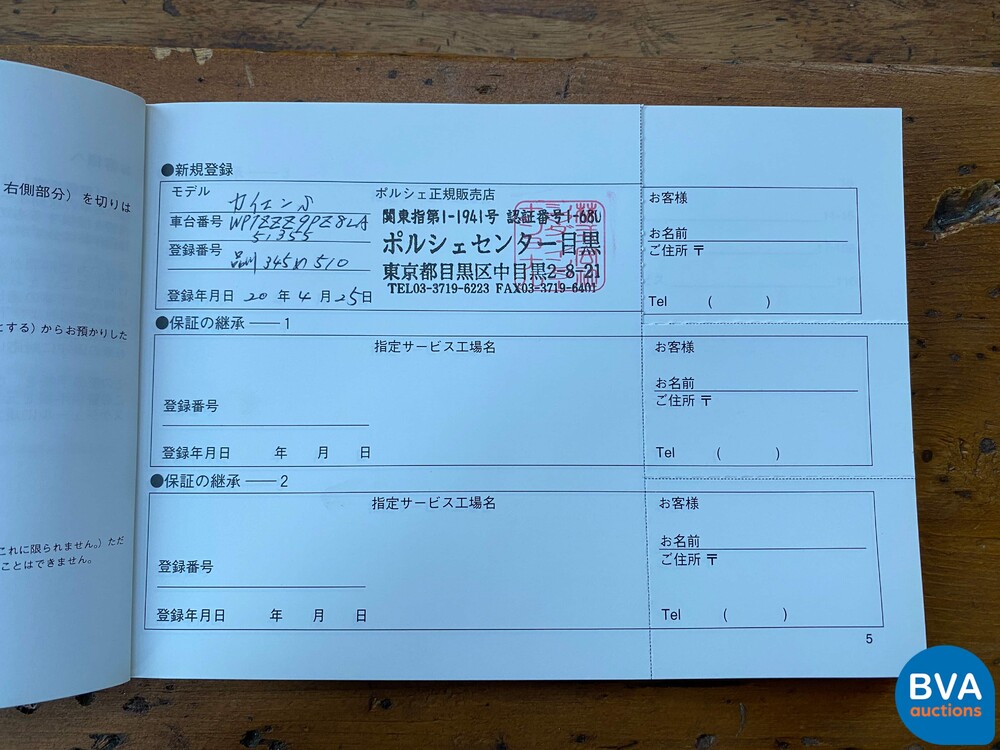 右側部分）を切りは
とする）からお預かりした
これに限られません。）ただ
ことはできません。
●新規登録
モデル カイエンS
ポルシェ正規販売店
車台番号 WP1ZZZ9PZ8LA
51355
関東指第1-1941号 認証番号1-680
ポルシェセンター目黒
登録番号 品川 345 の 510
東京都目黒区中目黒2-8-21
TEL03-3719-6223 FAX03-3719-6401
登録年月日 20 年 4 月 25 日
お客様
お名前
ご住所 〒
Tel ( )
●保証の継承 ── 1
指定サービス工場名
登録番号
登録年月日 年 月 日
お客様
お名前
ご住所 〒
Tel ( )
●保証の継承 ── 2
指定サービス工場名
登録番号
登録年月日 年 月 日
お客様
お名前
ご住所 〒
Tel ( )
5
BVA
auctions